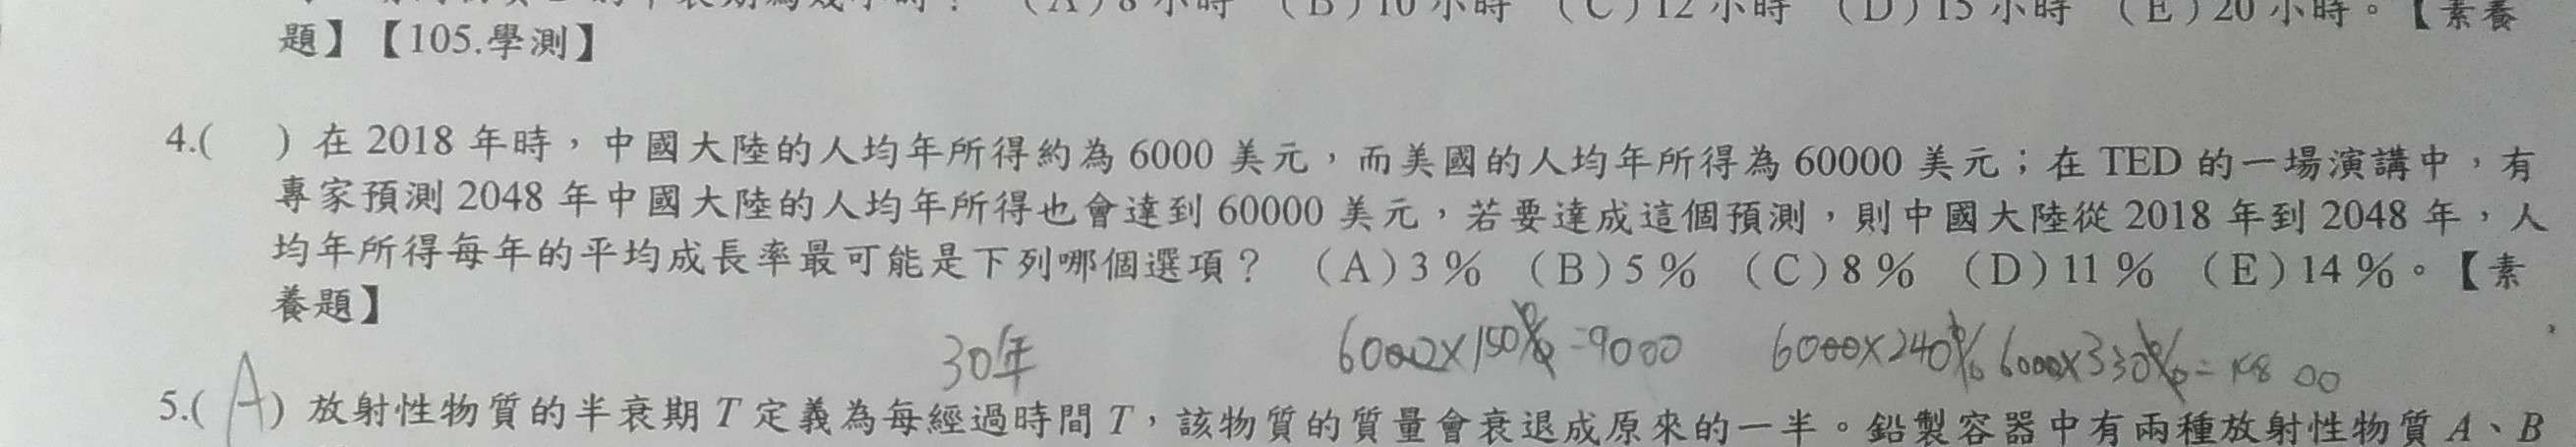 (A)8小時 (B)10小時 (C)12小時 (D)15小時 (E)20小時。【素養
題】【105.學測】
4.(　)在2018年時，中國大陸的人均年所得約為6000美元，而美國的人均年所得為60000美元；在TED的一場演講中，有
專家預測2048年中國大陸的人均年所得也會達到60000美元，若要達成這個預測，則中國大陸從2018年到2048年，人
均年所得每年的平均成長率最可能是下列哪個選項？ (A)3% (B)5% (C)8% (D)11% (E)14%。【素
養題】
30年 6000×150%=9000 6000×240% 6000×330%=
5.(A)放射性物質的半衰期T定義為每經過時間T，該物質的質量會衰退成原來的一半。鉛製容器中有兩種放射性物質A、B